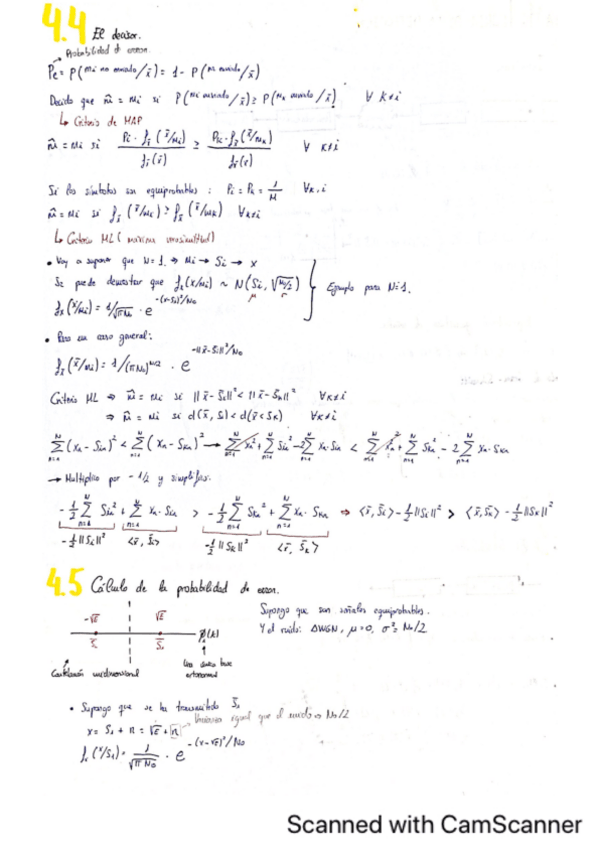 4.4 El decisor.
↳ Probabilidad de error.
Pe = P(mi no enviado/x̄) = 1 - P(mi enviado/x̄)
Decido que m̂ = mi si P(mi enviado/x̄) ≥ P(mk enviado/x̄) ∀ k≠i
↳ Criterio de MAP
m̂ = mi si Pi · fx̄(x̄/mi) / fx̄(x̄) ≥ Pk · fx̄(x̄/mk) / fx̄(x̄) ∀ k≠i
Si los símbolos son equiprobables: Pi = Pk = 1/M ∀k,i
m̂ = mi si fx̄(x̄/mi) ≥ fx̄(x̄/mk) ∀k≠i
↳ Criterio ML (máxima verosimilitud)
• Voy a suponer que N=1. → mi → Si → x
Se puede demostrar que fx(x/mi) ~ N(Si, √(N0/2)) Ejemplo para N=1.
μ σ
fx(x/mi) = 1/√πN0 · e^-(x-Si)²/N0
• Para un caso general:
fx̄(x̄/mi) = 1/(πN0)^N/2 · e^-||x̄-S̄i||²/N0
Criterio ML → m̂ = mi si ||x̄-S̄i||² < ||x̄-S̄k||² ∀k≠i
⇒ m̂ = mi si d(x̄, Si) < d(x̄, Sk) ∀k≠i
∑(xn - Sin)² < ∑(xn - Skn)² → ∑xn² + ∑Sin² - 2∑xn·Sin < ∑xn² + ∑Skn² - 2∑xn·Skn
→ Multiplico por -1/2 y simplifico.
-1/2 ∑Sin² + ∑xn·Sin > -1/2 ∑Skn² + ∑xn·Skn ⇒ ⟨x̄, S̄i⟩ - 1/2||Si||² > ⟨x̄, S̄k⟩ - 1/2||Sk||²
-1/2||Si||² ⟨x̄, S̄i⟩ -1/2||Sk||² ⟨x̄, S̄k⟩
4.5 Cálculo de la probabilidad de error.
-√E √E
Supongo que son señales equiprobables.
Y el ruido: AWGN, μ=0, σ²=N0/2
Constelación unidimensional
Una única base ortonormal
• Supongo que se ha transmitido S̄1
Varianza igual que el ruido → N0/2
x = S1 + n = √E + n
fx(x/S1) = 1/√πN0 · e^-(x-√E)²/N0
Scanned with CamScanner